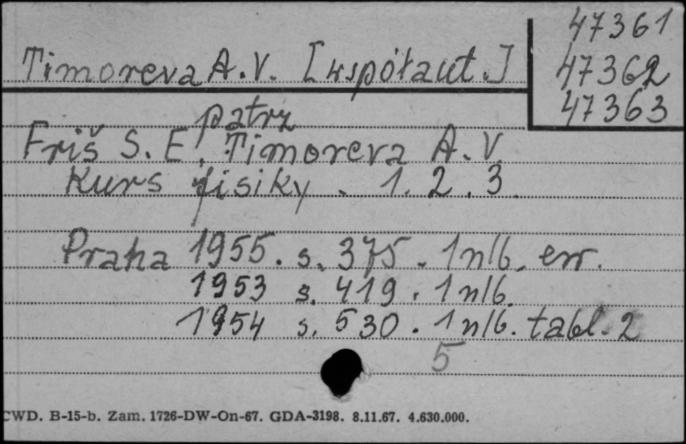 47361
Timoreva A.V. [współaut.] 47362
47363
patrz
Friš S. E., Timoreva A. V
Kurs fisiky. 1. 2. 3
Praha 1955. s. 375. 1 nlb. err.
1953 s. 419. 1 nlb.
1954 s. 530. 1 nlb. tabl. 2
5
CWD. B-15-b. Zam. 1726-DW-On-67. GDA-3198. 8.11.67. 4.630.000.